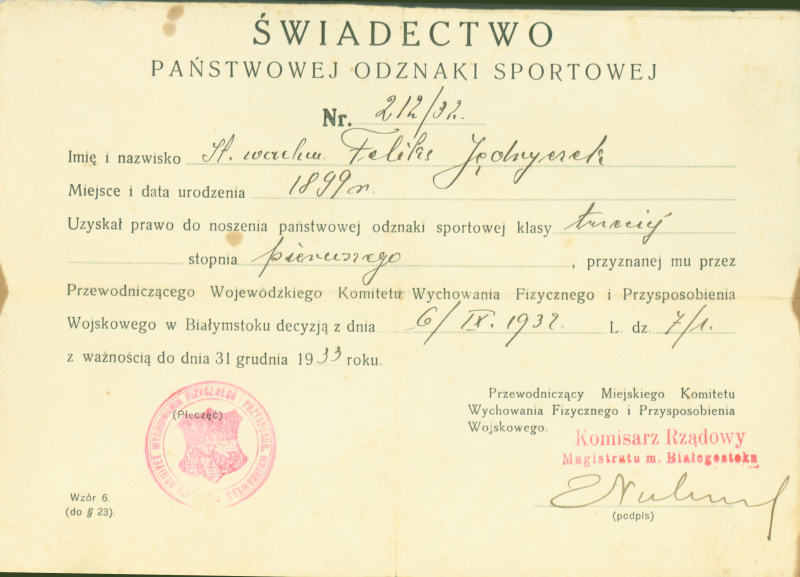 ŚWIADECTWO
PAŃSTWOWEJ ODZNAKI SPORTOWEJ
Nr. 212/32.
Imię i nazwisko St. wachm. Feliks Jędryczek
Miejsce i data urodzenia 1899 r.
Uzyskał prawo do noszenia państwowej odznaki sportowej klasy trzeciej
stopnia pierwszego, przyznanej mu przez
Przewodniczącego Wojewódzkiego Komitetu Wychowania Fizycznego i Przysposobienia
Wojskowego w Białymstoku decyzją z dnia 6/IX. 1932. L. dz. 7/1.
z ważnością do dnia 31 grudnia 1933 roku.
(Pieczęć)
KOMITET WYCHOWANIA FIZYCZNEGO I PRZYSPOSOB. WOJSKOWEGO
Przewodniczący Miejskiego Komitetu
Wychowania Fizycznego i Przysposobienia
Wojskowego.
Komisarz Rządowy
Magistratu m. Białegostoku
Wzór 6.
(do § 23).
(podpis)